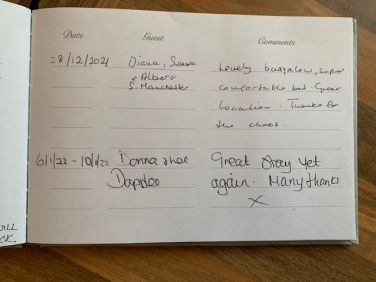 Date Guest Comments
28/12/2021 Diana, Lovely bungalow, super
& Albert comfortable bed. Great
S. Manchester location. Thanks for
the choas.
6/1/22 - 10/1/22 Donna & Lee Great stay yet
again. Many thanks
X